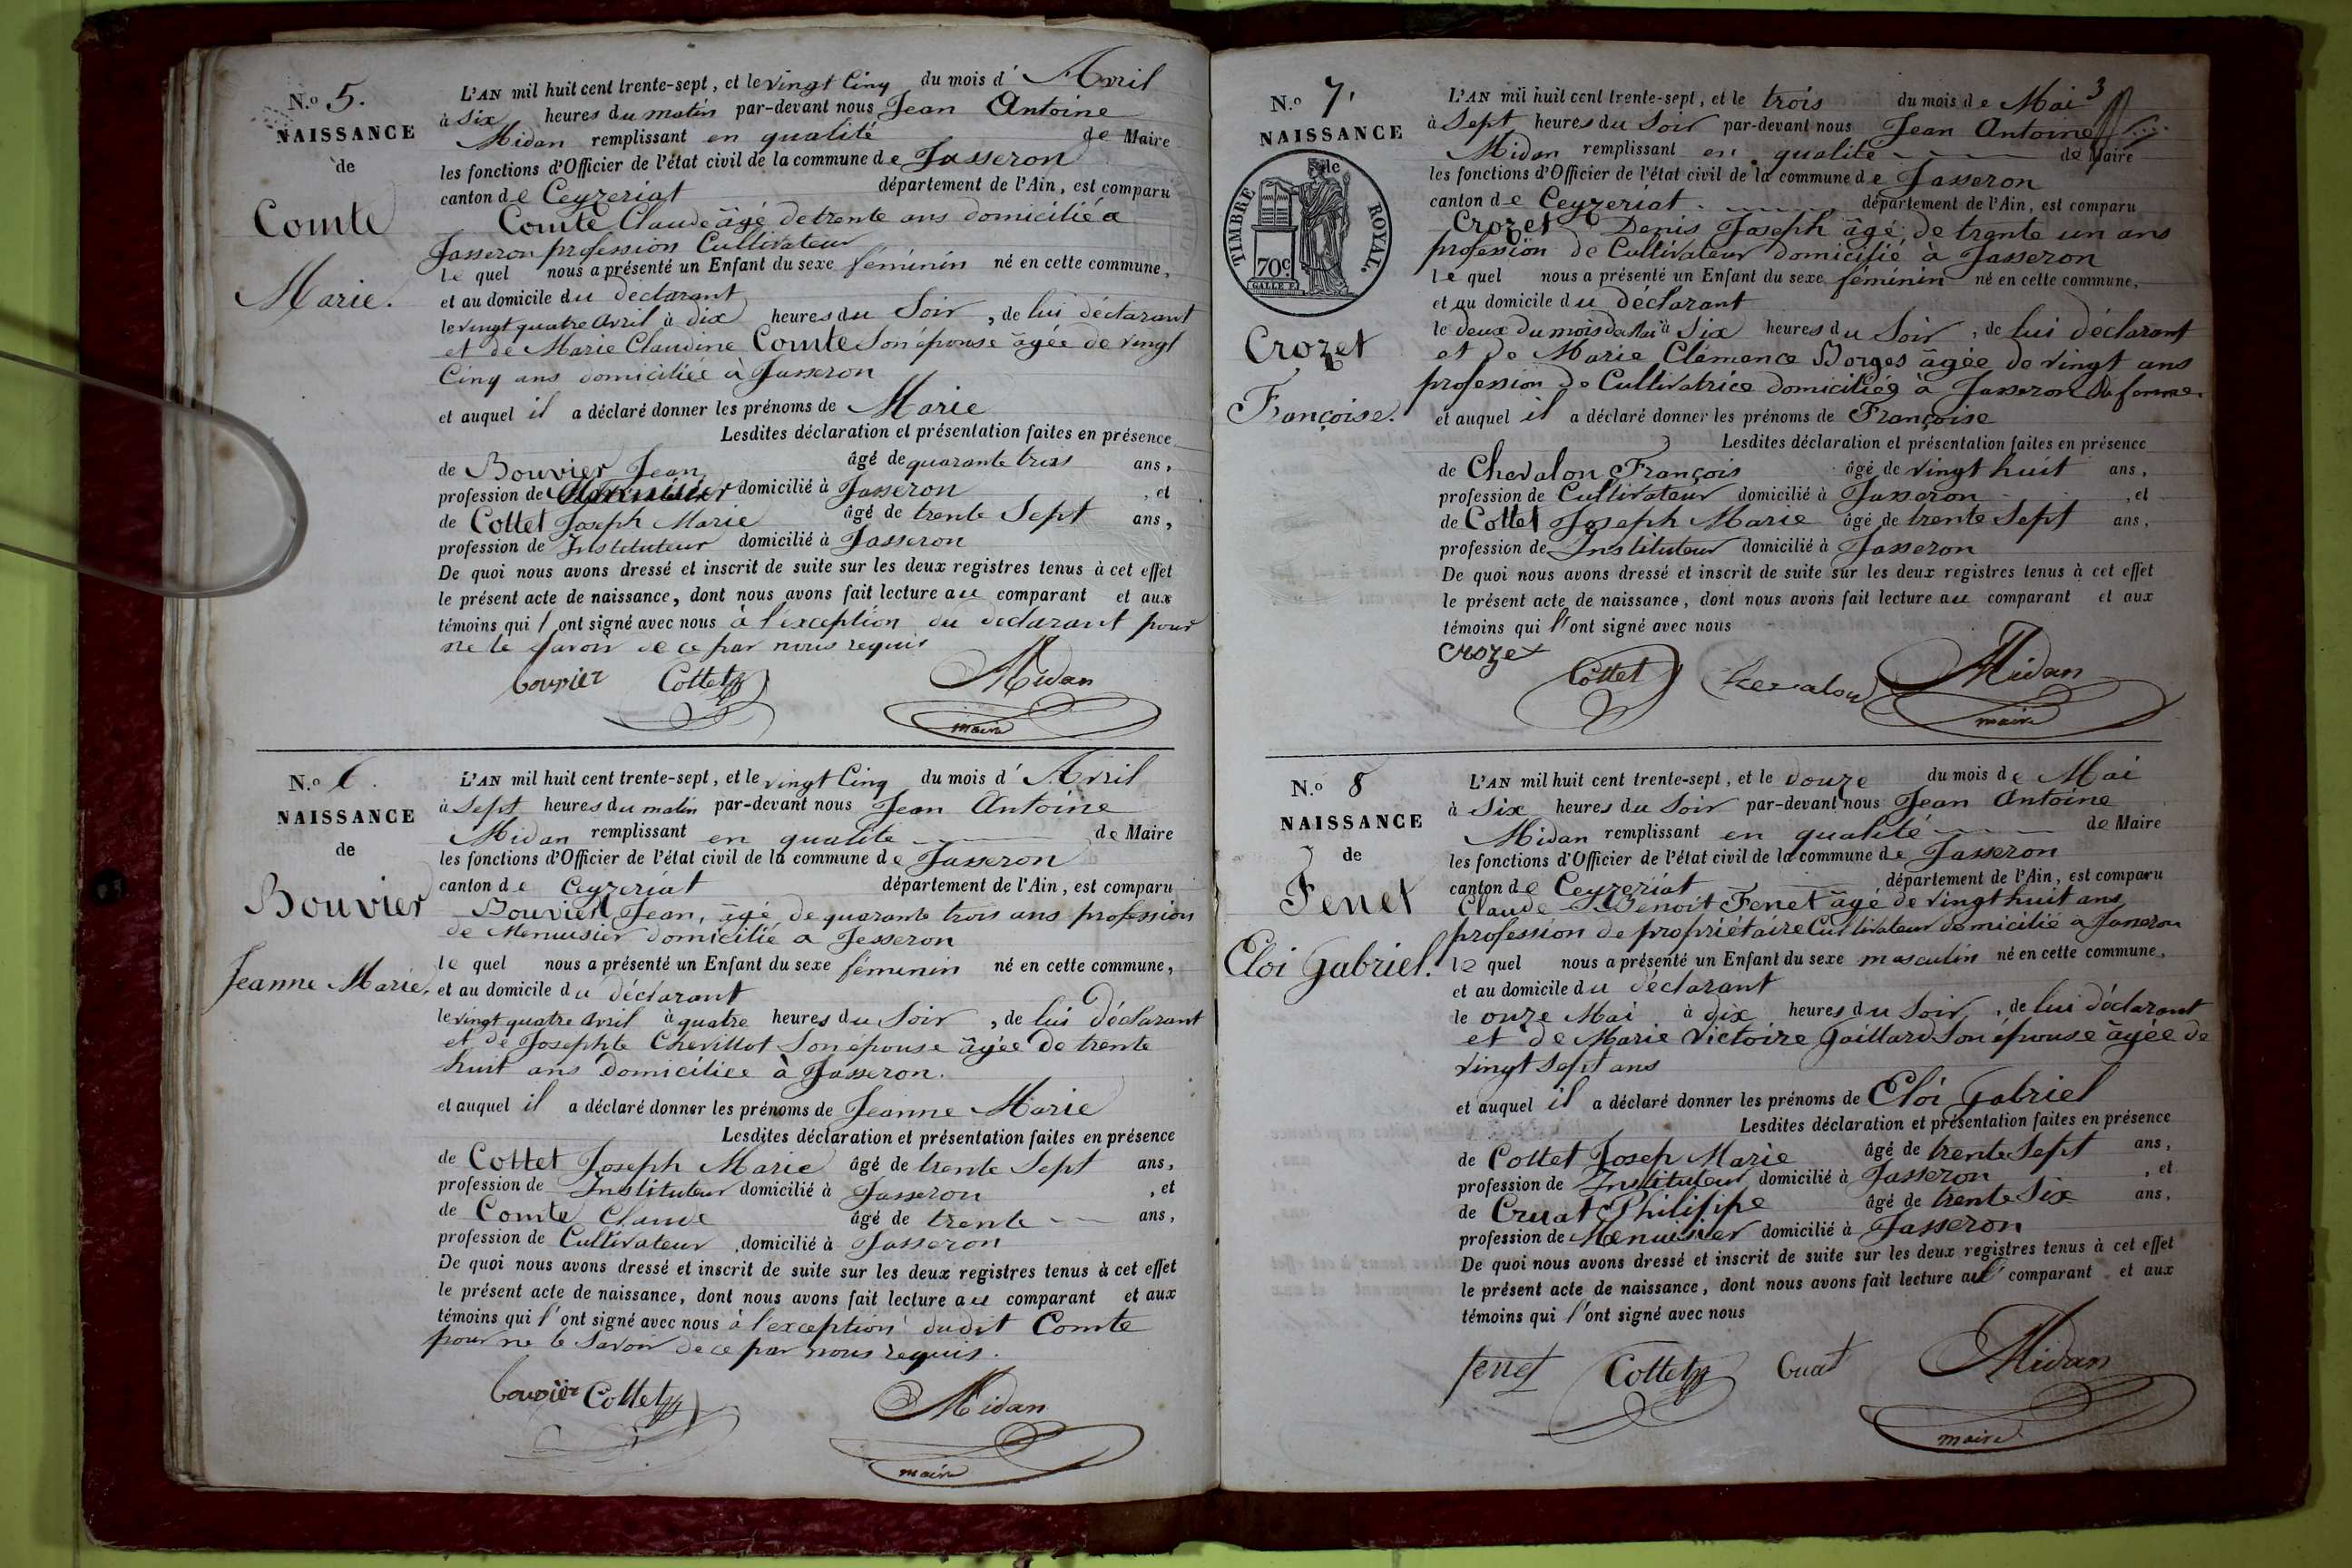 N.o 5.
NAISSANCE
de
Comte
Marie.
L'AN mil huit cent trente-sept, et le vingt Cinq du mois d' Avril
à Six heures du matin par-devant nous Jean Antoine
Midan remplissant en qualité de Maire
les fonctions d'Officier de l'état civil de la commune de Jasseron
canton de Ceyzeriat département de l'Ain, est comparu
Comte Claude âgé de trente ans domicilié a
Jasseron profession Cultivateur
le quel nous a présenté un Enfant du sexe féminin né en cette commune,
et au domicile du declarant
le vingt quatre avril à dix heures du Soir, de lui déclarant
et de Marie Claudine Comte Son épouse âgée de vingt
Cinq ans domiciliée à Jasseron
et auquel il a déclaré donner les prénoms de Marie
Lesdites déclaration et présentation faites en présence
de Bouvier Jean âgé de quarante trois ans,
profession de domicilié à Jasseron, et
de Cottet Joseph Marie âgé de trente Sept ans,
profession de Instituteur domicilié à Jasseron
De quoi nous avons dressé et inscrit de suite sur les deux registres tenus à cet effet
le présent acte de naissance, dont nous avons fait lecture au comparant et aux
témoins qui l'ont signé avec nous à l'exception du declarant pour
ne le Savoir de ce par nous requis
bouvier Cottet Midan
maire
N.o 6.
NAISSANCE
de
Bouvier
Jeanne Marie.
L'AN mil huit cent trente-sept, et le vingt Cinq du mois d' Avril
à Sept heures du matin par-devant nous Jean Antoine
Midan remplissant en qualité de Maire
les fonctions d'Officier de l'état civil de la commune de Jasseron
canton de Ceyzeriat département de l'Ain, est comparu
Bouvier Jean, âgé de quarante trois ans profession
de Menuisier domicilié a Jesseron
le quel nous a présenté un Enfant du sexe féminin né en cette commune,
et au domicile du déclarant
le vingt quatre avril à quatre heures du Soir, de lui Déclarant
et de Josephte Chevillot Son epouse âgée de trente
huit ans domiciliée à Jasseron.
et auquel il a déclaré donner les prénoms de Jeanne Marie
Lesdites déclaration et présentation faites en présence
de Cottet Joseph Marie âgé de trente Sept ans,
profession de Instituteur domicilié à Jasseron, et
de Comte Claude âgé de trente ans,
profession de Cultivateur domicilié à Jasseron
De quoi nous avons dressé et inscrit de suite sur les deux registres tenus à cet effet
le présent acte de naissance, dont nous avons fait lecture au comparant et aux
témoins qui l'ont signé avec nous à l'exception dudit Comte
pour ne le Savoir de ce par nous requis.
bouvier Cottet Midan
maire
3
N.o 7.
NAISSANCE
de
TIMBRE ROYAL.
70c
Crozet
Françoise.
L'AN mil huit cent trente-sept, et le trois du mois de Mai
à Sept heures du Soir par-devant nous Jean Antoine
Midan remplissant en qualité de Maire
les fonctions d'Officier de l'état civil de la commune de Jasseron
canton de Ceyzeriat département de l'Ain, est comparu
Crozet Denis Joseph âgé de trente un ans
profession de Cultivateur domicilié à Jasseron
le quel nous a présenté un Enfant du sexe féminin né en cette commune,
et au domicile du déclarant
le deux du mois de Mai à Six heures du Soir, de lui déclarant
et de Marie Clémence Borges âgée de vingt ans
profession de Cultivatrice domiciliée à Jasseron Sa femme.
et auquel il a déclaré donner les prénoms de Françoise
Lesdites déclaration et présentation faites en présence
de Chevalon François âgé de vingt huit ans,
profession de Cultivateur domicilié à Jasseron, et
de Cottet Joseph Marie âgé de trente Sept ans,
profession de Instituteur domicilié à Jasseron
De quoi nous avons dressé et inscrit de suite sur les deux registres tenus à cet effet
le présent acte de naissance, dont nous avons fait lecture au comparant et aux
témoins qui l'ont signé avec nous
crozet Cottet Chevalon Midan
maire
N.o 8
NAISSANCE
de
Fenet
Eloi Gabriel.
L'AN mil huit cent trente-sept, et le douze du mois de Mai
à Six heures du Soir par-devant nous Jean Antoine
Midan remplissant en qualité de Maire
les fonctions d'Officier de l'état civil de la commune de Jasseron
canton de Ceyzeriat département de l'Ain, est comparu
Claude Benoit Fenet âgé de vingt huit ans
profession de propriétaire Cultivateur domicilié a Jasseron
le quel nous a présenté un Enfant du sexe masculin né en cette commune,
et au domicile du déclarant
le onze Mai à dix heures du Soir, de lui déclarant
et de Marie Victoire Gaillard Son épouse âgée de
vingt Sept ans
et auquel il a déclaré donner les prénoms de Eloi Gabriel
Lesdites déclaration et présentation faites en présence
de Cottet Joseph Marie âgé de trente Sept ans,
profession de Instituteur domicilié à Jasseron, et
de Cruat Philippe âgé de trente Six ans,
profession de Menuisier domicilié à Jasseron
De quoi nous avons dressé et inscrit de suite sur les deux registres tenus à cet effet
le présent acte de naissance, dont nous avons fait lecture au comparant et aux
témoins qui l'ont signé avec nous
fenet Cottet Cruat Midan
maire